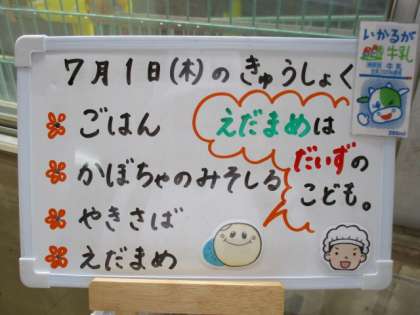 7月1日(木)のきゅうしょく
ごはん
かぼちゃのみそしる
やきさば
えだまめ
えだまめは
だいずの
こども。
いかるが
牛乳